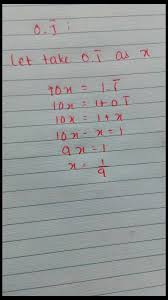 0.1̅ :
Let take 0.1̅ as x
10x = 1.1̅
10x = 1+0.1̅
10x = 1+x
10x - x = 1
9x = 1
x = 1/9